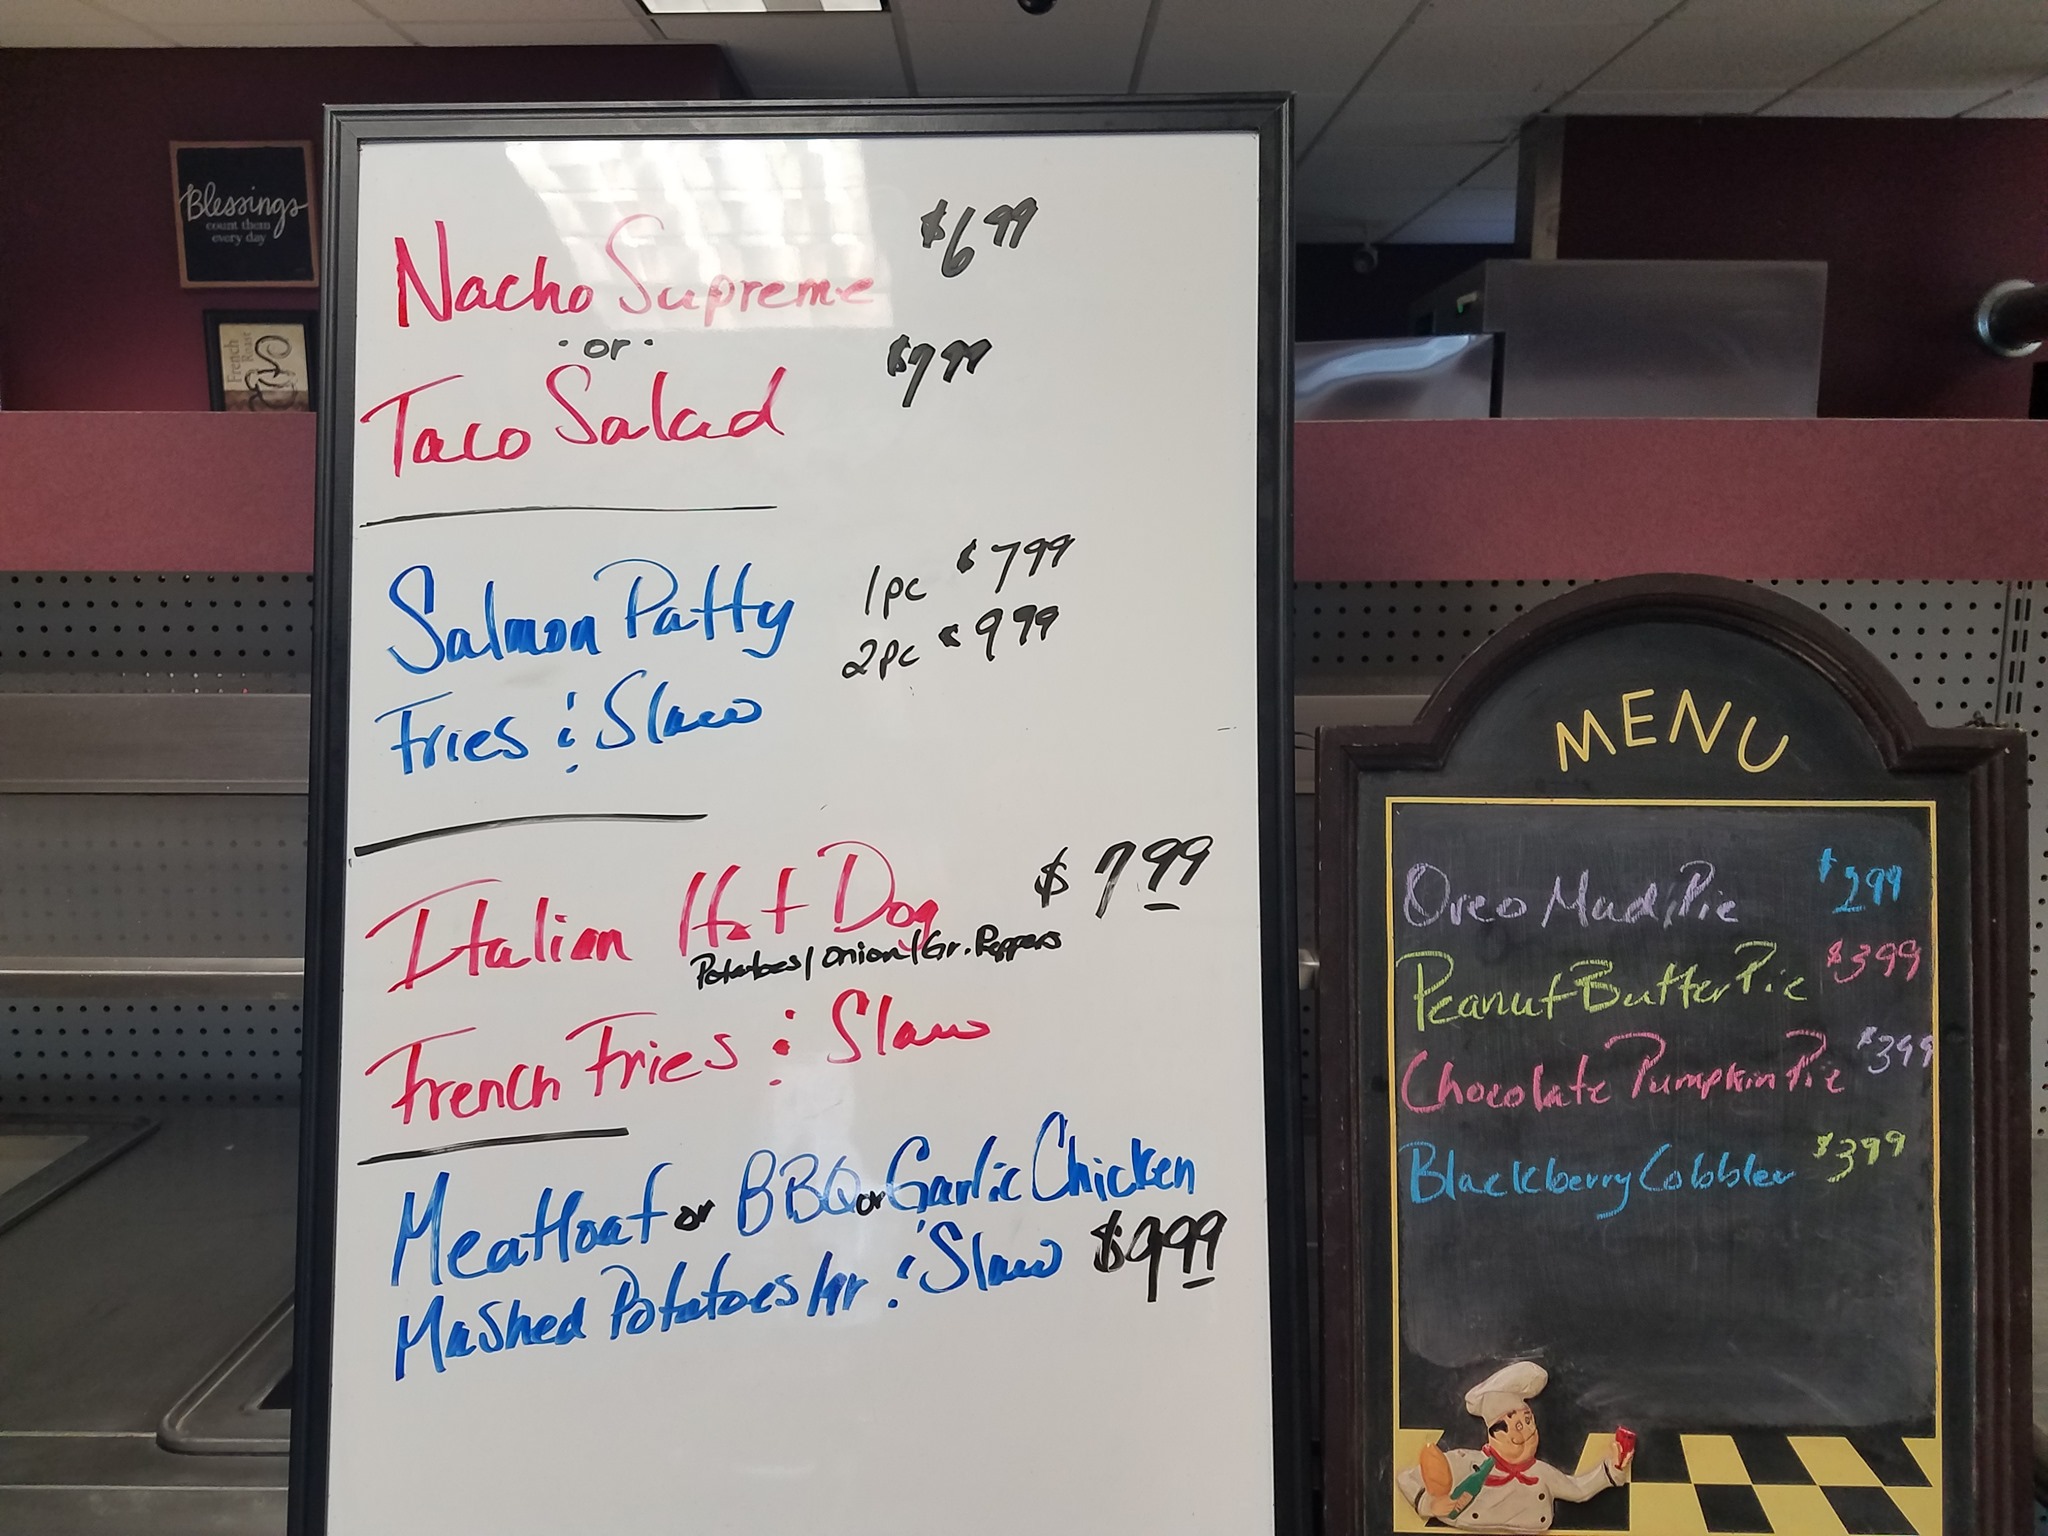 Blessings
count them
every day
French
Roast
Nacho Supreme $6 99
· or ·
Taco Salad $7 99
Salmon Patty 1pc $7 99
2pc $9 99
Fries & Slaw
Italian Hot Dog $7 99
Potatoes/Onion/Gr. Peppers
French Fries & Slaw
Meatloaf or BBQ or Garlic Chicken
Mashed Potatoes/Gr & Slaw $9 99
MENU
Oreo Mud Pie $2 99
Peanut Butter Pie $3 99
Chocolate Pumpkin Pie $3 99
Blackberry Cobbler $3 99